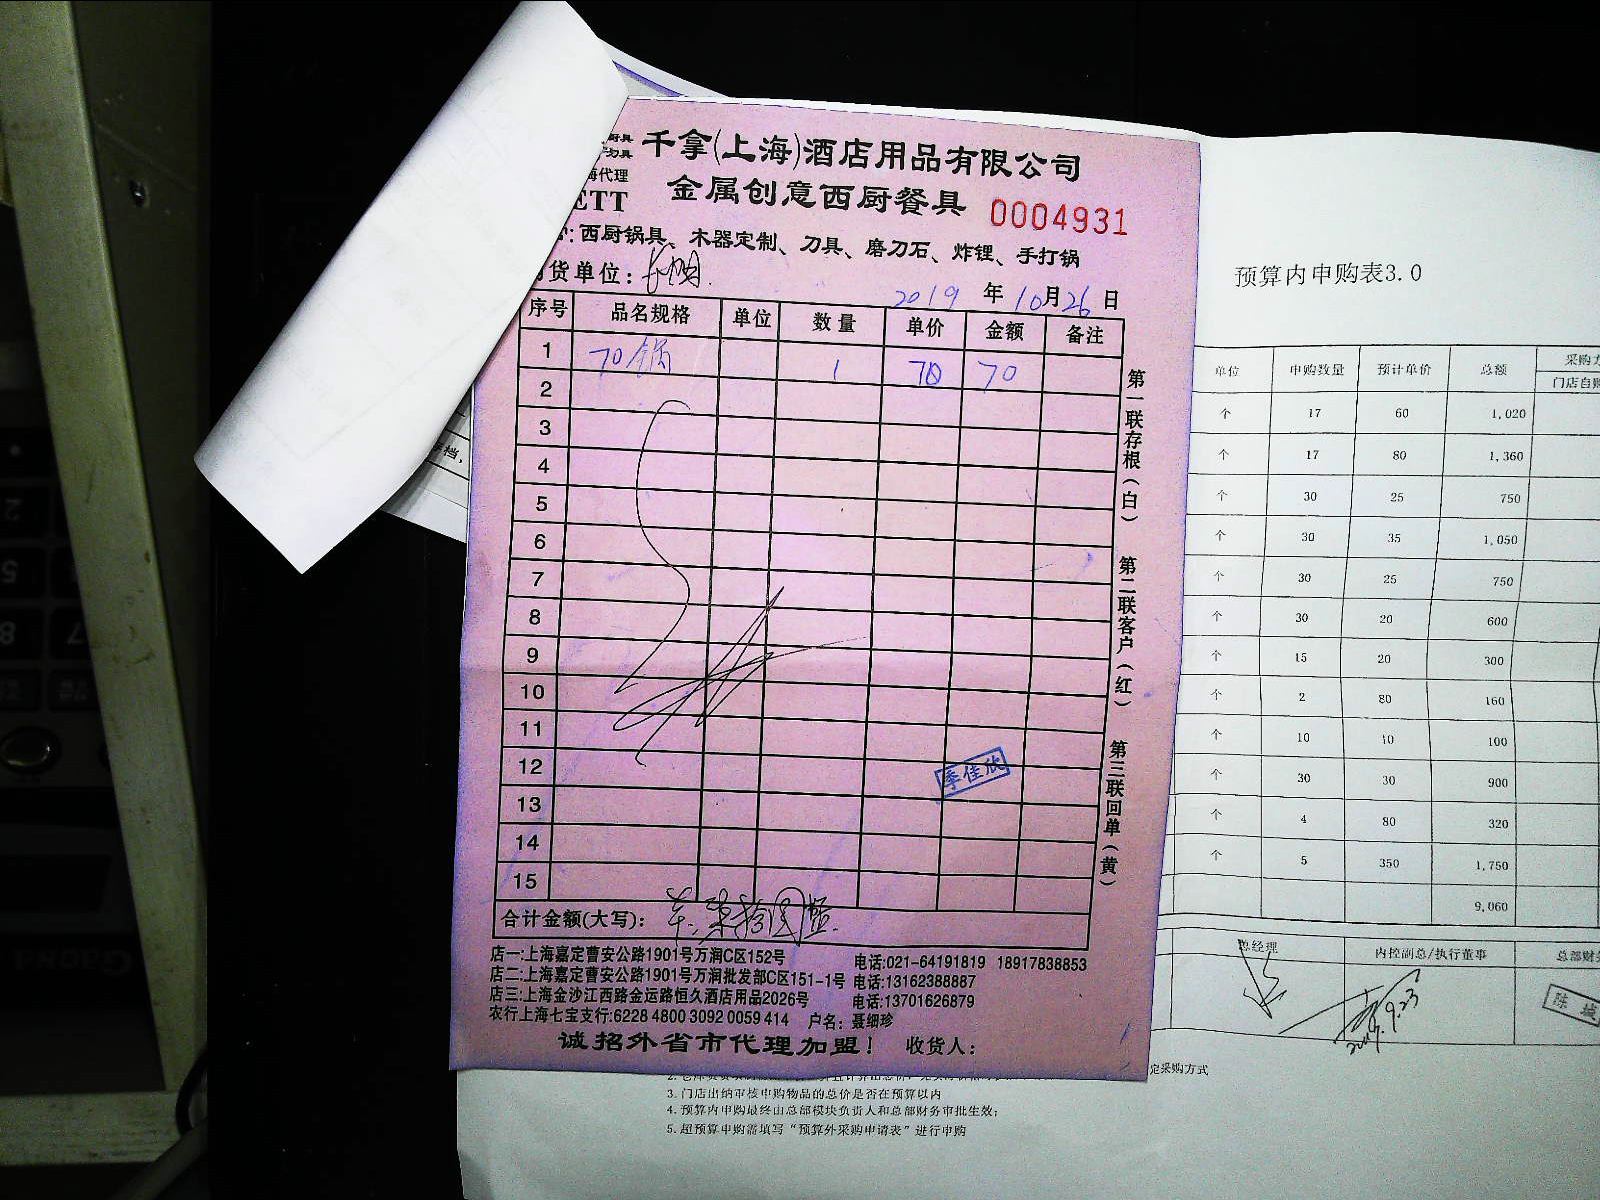 千拿(上海)酒店用品有限公司
金属创意西厨餐具
海代理
ETT
0004931
西厨锅具、木器定制、刀具、磨刀石、炸锂、手打锅
货单位:
2019 年 10 月 26 日
序号 品名规格 单位 数量 单价 金额 备注
1 70锅 1 70 70
2
3
4
5
6
7
8
9
10
11
12
13
14
15
季佳欣
合计金额(大写): 柒拾圆整
第一联存根(白) 第二联客户(红) 第三联回单(黄)
店一:上海嘉定曹安公路1901号万润C区152号 电话:021-64191819 18917838853
店二:上海嘉定曹安公路1901号万润批发部C区151-1号 电话:13162388887
店三:上海金沙江西路金运路恒久酒店用品2026号 电话:13701626879
农行上海七宝支行:6228 4800 3092 0059 414 户名: 聂细珍
诚招外省市代理加盟! 收货人:
预算内申购表3.0
单位 申购数量 预计单价 总额 采购
门店自购
个 17 60 1,020
个 17 80 1,360
个 30 25 750
个 30 35 1,050
个 30 25 750
个 30 20 600
个 15 20 300
个 2 80 160
个 10 10 100
个 30 30 900
个 4 80 320
个 5 350 1,750
9,060
总经理 内控副总/执行董事 总部财
2019.9.23
陈
定采购方式
3. 门店出纳审核申购物品的总价是否在预算以内
4. 预算内申购最终由总部模块负责人和总部财务审批生效;
5. 超预算申购需填写“预算外采购申请表”进行申购